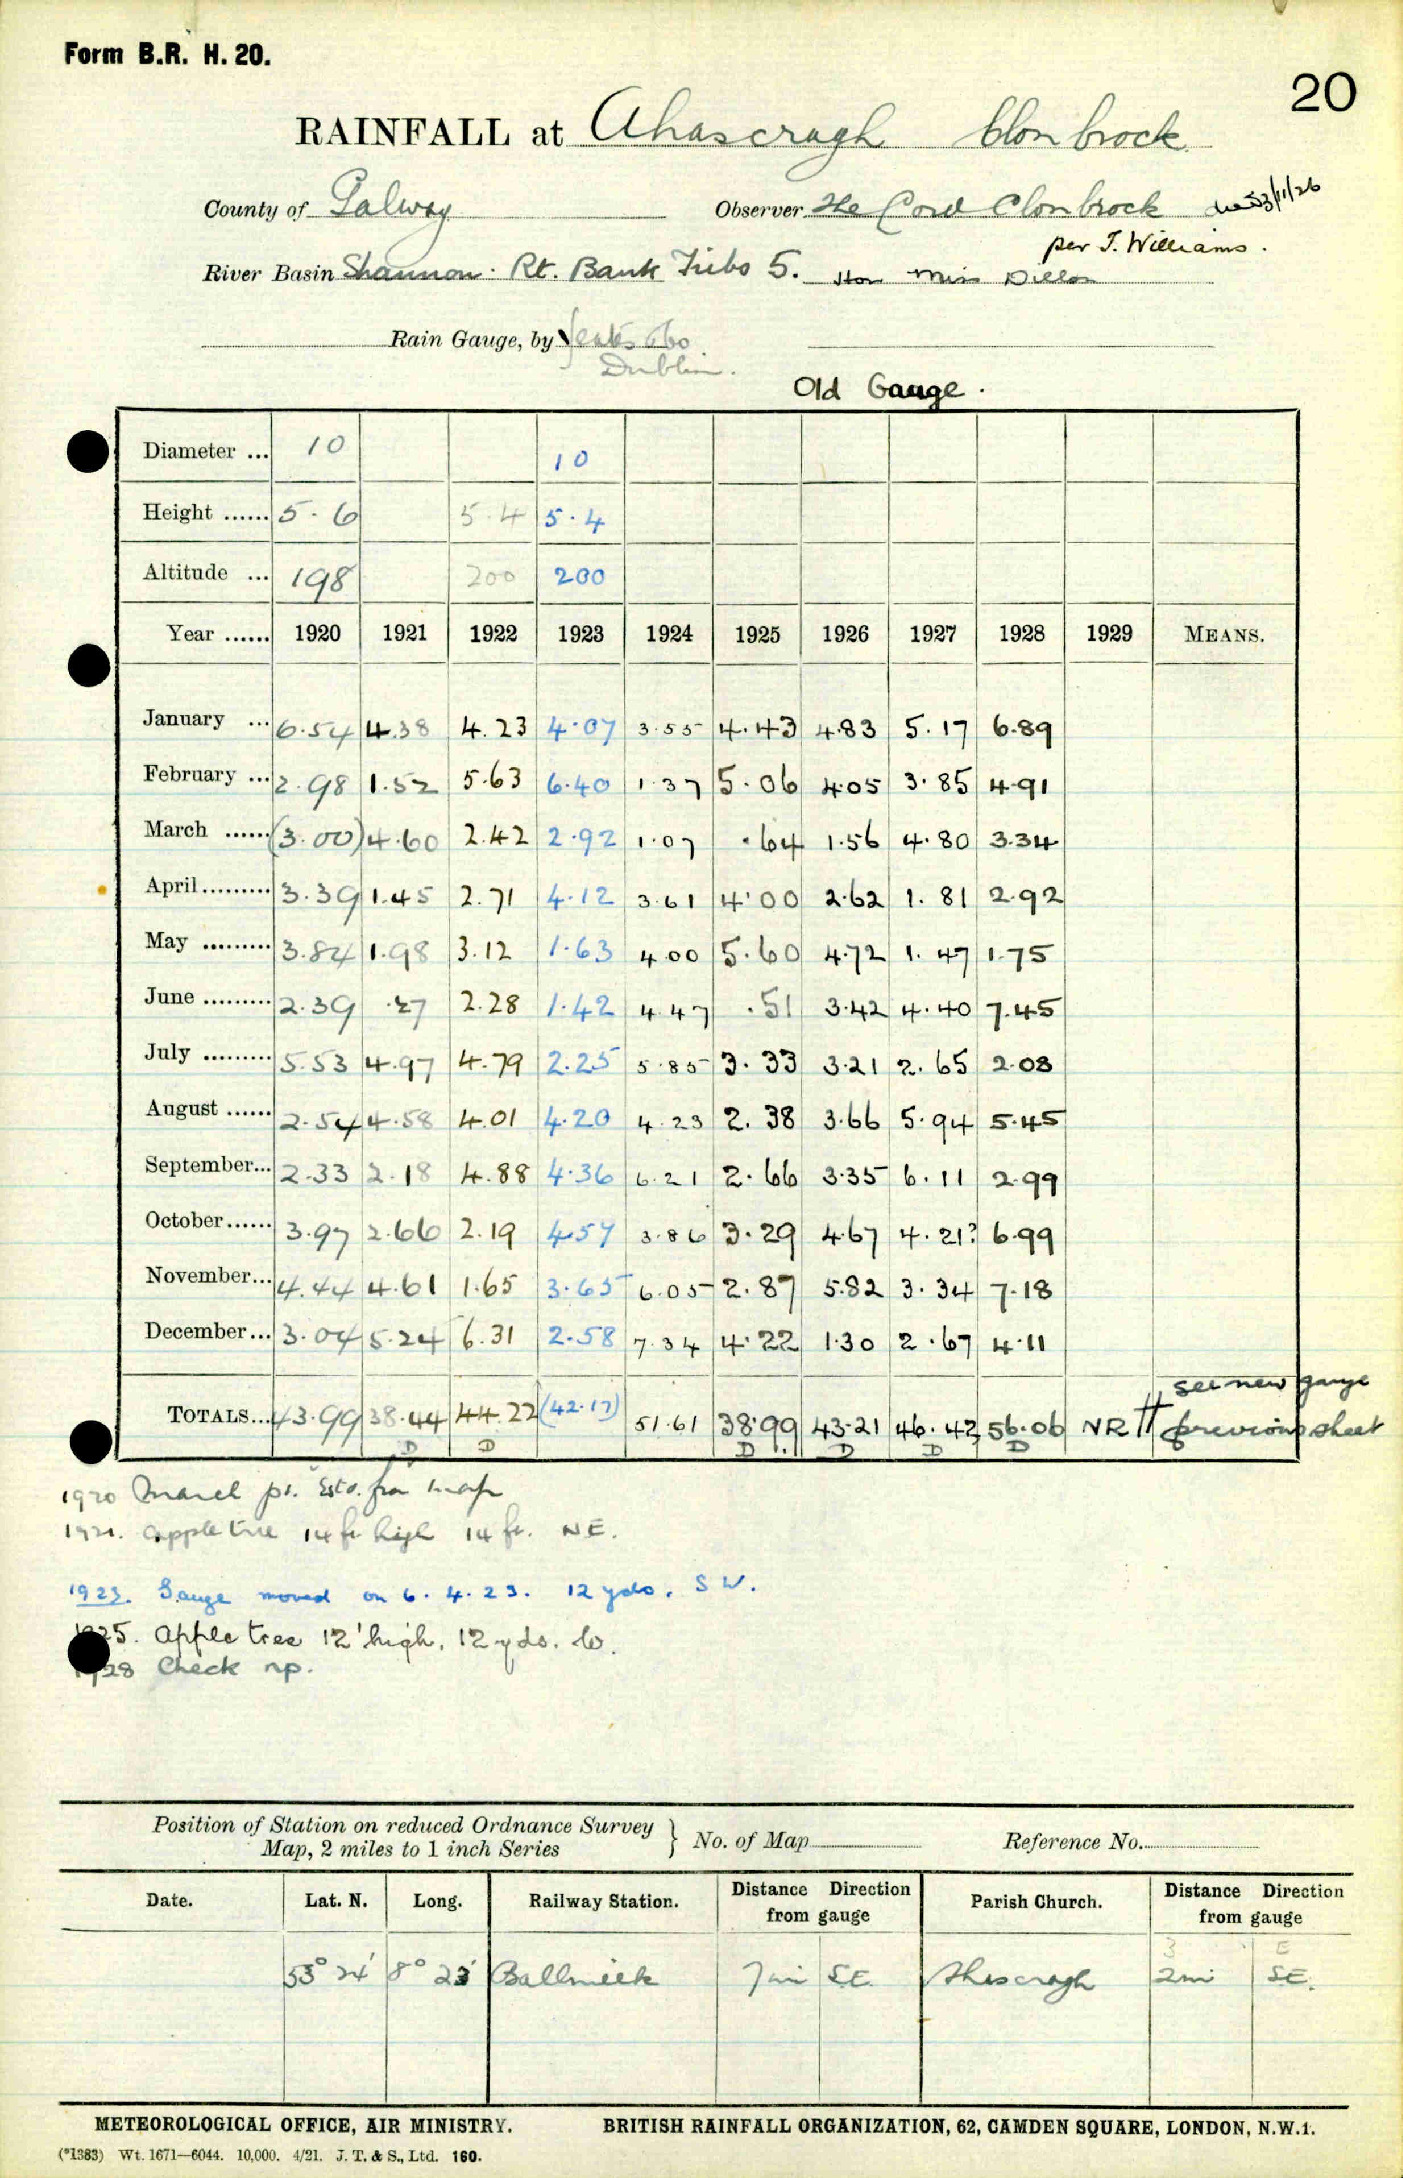 Form B.R. H. 20.
20
RAINFALL at Ahascragh Clonbrock
County of Galway Observer The Lord Clonbrock died 3/11/26
per T. Williams.
River Basin Shannon. Rt. Bank Tribs 5. Hon Miss Dillon
Rain Gauge, by Yeates & Co
Dublin.
Old Gauge.
Diameter ... 10 10
Height ...... 5.6 5.4 5.4
Altitude ... 198 200 200
Year ...... 1920 1921 1922 1923 1924 1925 1926 1927 1928 1929 MEANS.
January ... 6.54 4.38 4.23 4.07 3.55 4.43 4.83 5.17 6.89
February ... 2.98 1.52 5.63 6.40 1.37 5.06 4.05 3.85 4.91
March ...... (3.00) 4.60 2.42 2.92 1.07 .64 1.56 4.80 3.34
April ......... 3.39 1.45 2.71 4.12 3.61 4.00 2.62 1.81 2.92
May ......... 3.84 1.98 3.12 1.63 4.00 5.60 4.72 1.47 1.75
June ......... 2.39 .27 2.28 1.42 4.47 .51 3.42 4.40 7.45
July ......... 5.53 4.97 4.79 2.25 5.85 3.33 3.21 2.65 2.08
August ...... 2.54 4.58 4.01 4.20 4.23 2.38 3.66 5.94 5.45
September... 2.33 2.18 4.88 4.36 6.21 2.66 3.35 6.11 2.99
October ...... 3.97 2.66 2.19 4.57 3.86 3.29 4.67 4.21? 6.99
November... 4.44 4.61 1.65 3.65 6.05 2.87 5.82 3.34 7.18
December... 3.04 5.24 6.31 2.58 7.34 4.22 1.30 2.67 4.11
see new gauge
TOTALS... 43.99 38.44 44.22 (42.17) 51.61 38.99 43.21 46.42 56.06 NR previous sheet
D D D D D D
1920 March pt. Estd. from map
1921. apple tree 14 ft high 14 ft. NE.
1923. Gauge moved on 6.4.23. 12 yds. SW.
1925. Apple tree 12' high, 12 yds. W.
1928 Check np.
Position of Station on reduced Ordnance Survey
Map, 2 miles to 1 inch Series } No. of Map Reference No.
Date. Lat. N. Long. Railway Station. Distance Direction from gauge Parish Church. Distance Direction from gauge
3 E
53° 24' 8° 23' 7 mi SE Ahascragh 2 mi SE.
METEOROLOGICAL OFFICE, AIR MINISTRY. BRITISH RAINFALL ORGANIZATION, 62, CAMDEN SQUARE, LONDON, N.W.1.
(*1383) Wt. 1671—6044. 10,000. 4/21. J. T. & S., Ltd. 160.